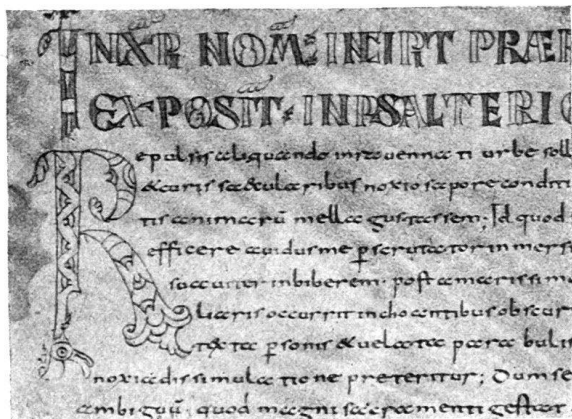 IN XPI NOM̄; INCIPT PRÆF
EXPOSIT; IN PSALTERIO
Repulsis aliquando in rauennati urbe soll
& curis sæcularibus noxio sapore conditi
tis animarū mella gustassem; Id quod
efficere auidus me pscrutator in mersi
suauiter inbiberem. post amarissima
liaris occurrit inchoantibus obscuri
texta psonis & uelata parabulis
noxia dissimulatione preteritur; Dum se
ambiguū. quod magni sacramenti gestat